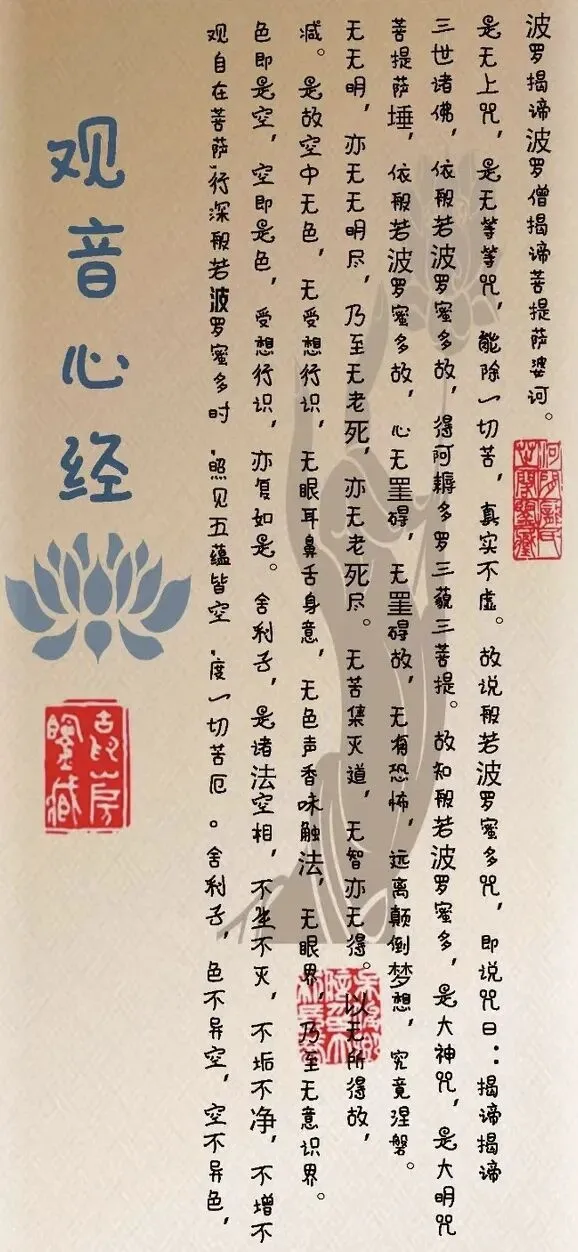 观音心经
观自在菩萨,行深般若波罗蜜多时,照见五蕴皆空,度一切苦厄。舍利子,色不异空,空不异色,
色即是空,空即是色,受想行识,亦复如是。舍利子,是诸法空相,不生不灭,不垢不净,不增不
减。是故空中无色,无受想行识,无眼耳鼻舌身意,无色声香味触法,无眼界,乃至无意识界。
无无明,亦无无明尽,乃至无老死,亦无老死尽。无苦集灭道,无智亦无得。以无所得故,
菩提萨埵,依般若波罗蜜多故,心无罣碍,无罣碍故,无有恐怖,远离颠倒梦想,究竟涅磐。
三世诸佛,依般若波罗蜜多故,得阿耨多罗三藐三菩提。故知般若波罗蜜多,是大神咒,是大明咒
是无上咒,是无等等咒,能除一切苦,真实不虚。故说般若波罗蜜多咒,即说咒曰:揭谛揭谛
波罗揭谛波罗僧揭谛菩提萨婆诃。